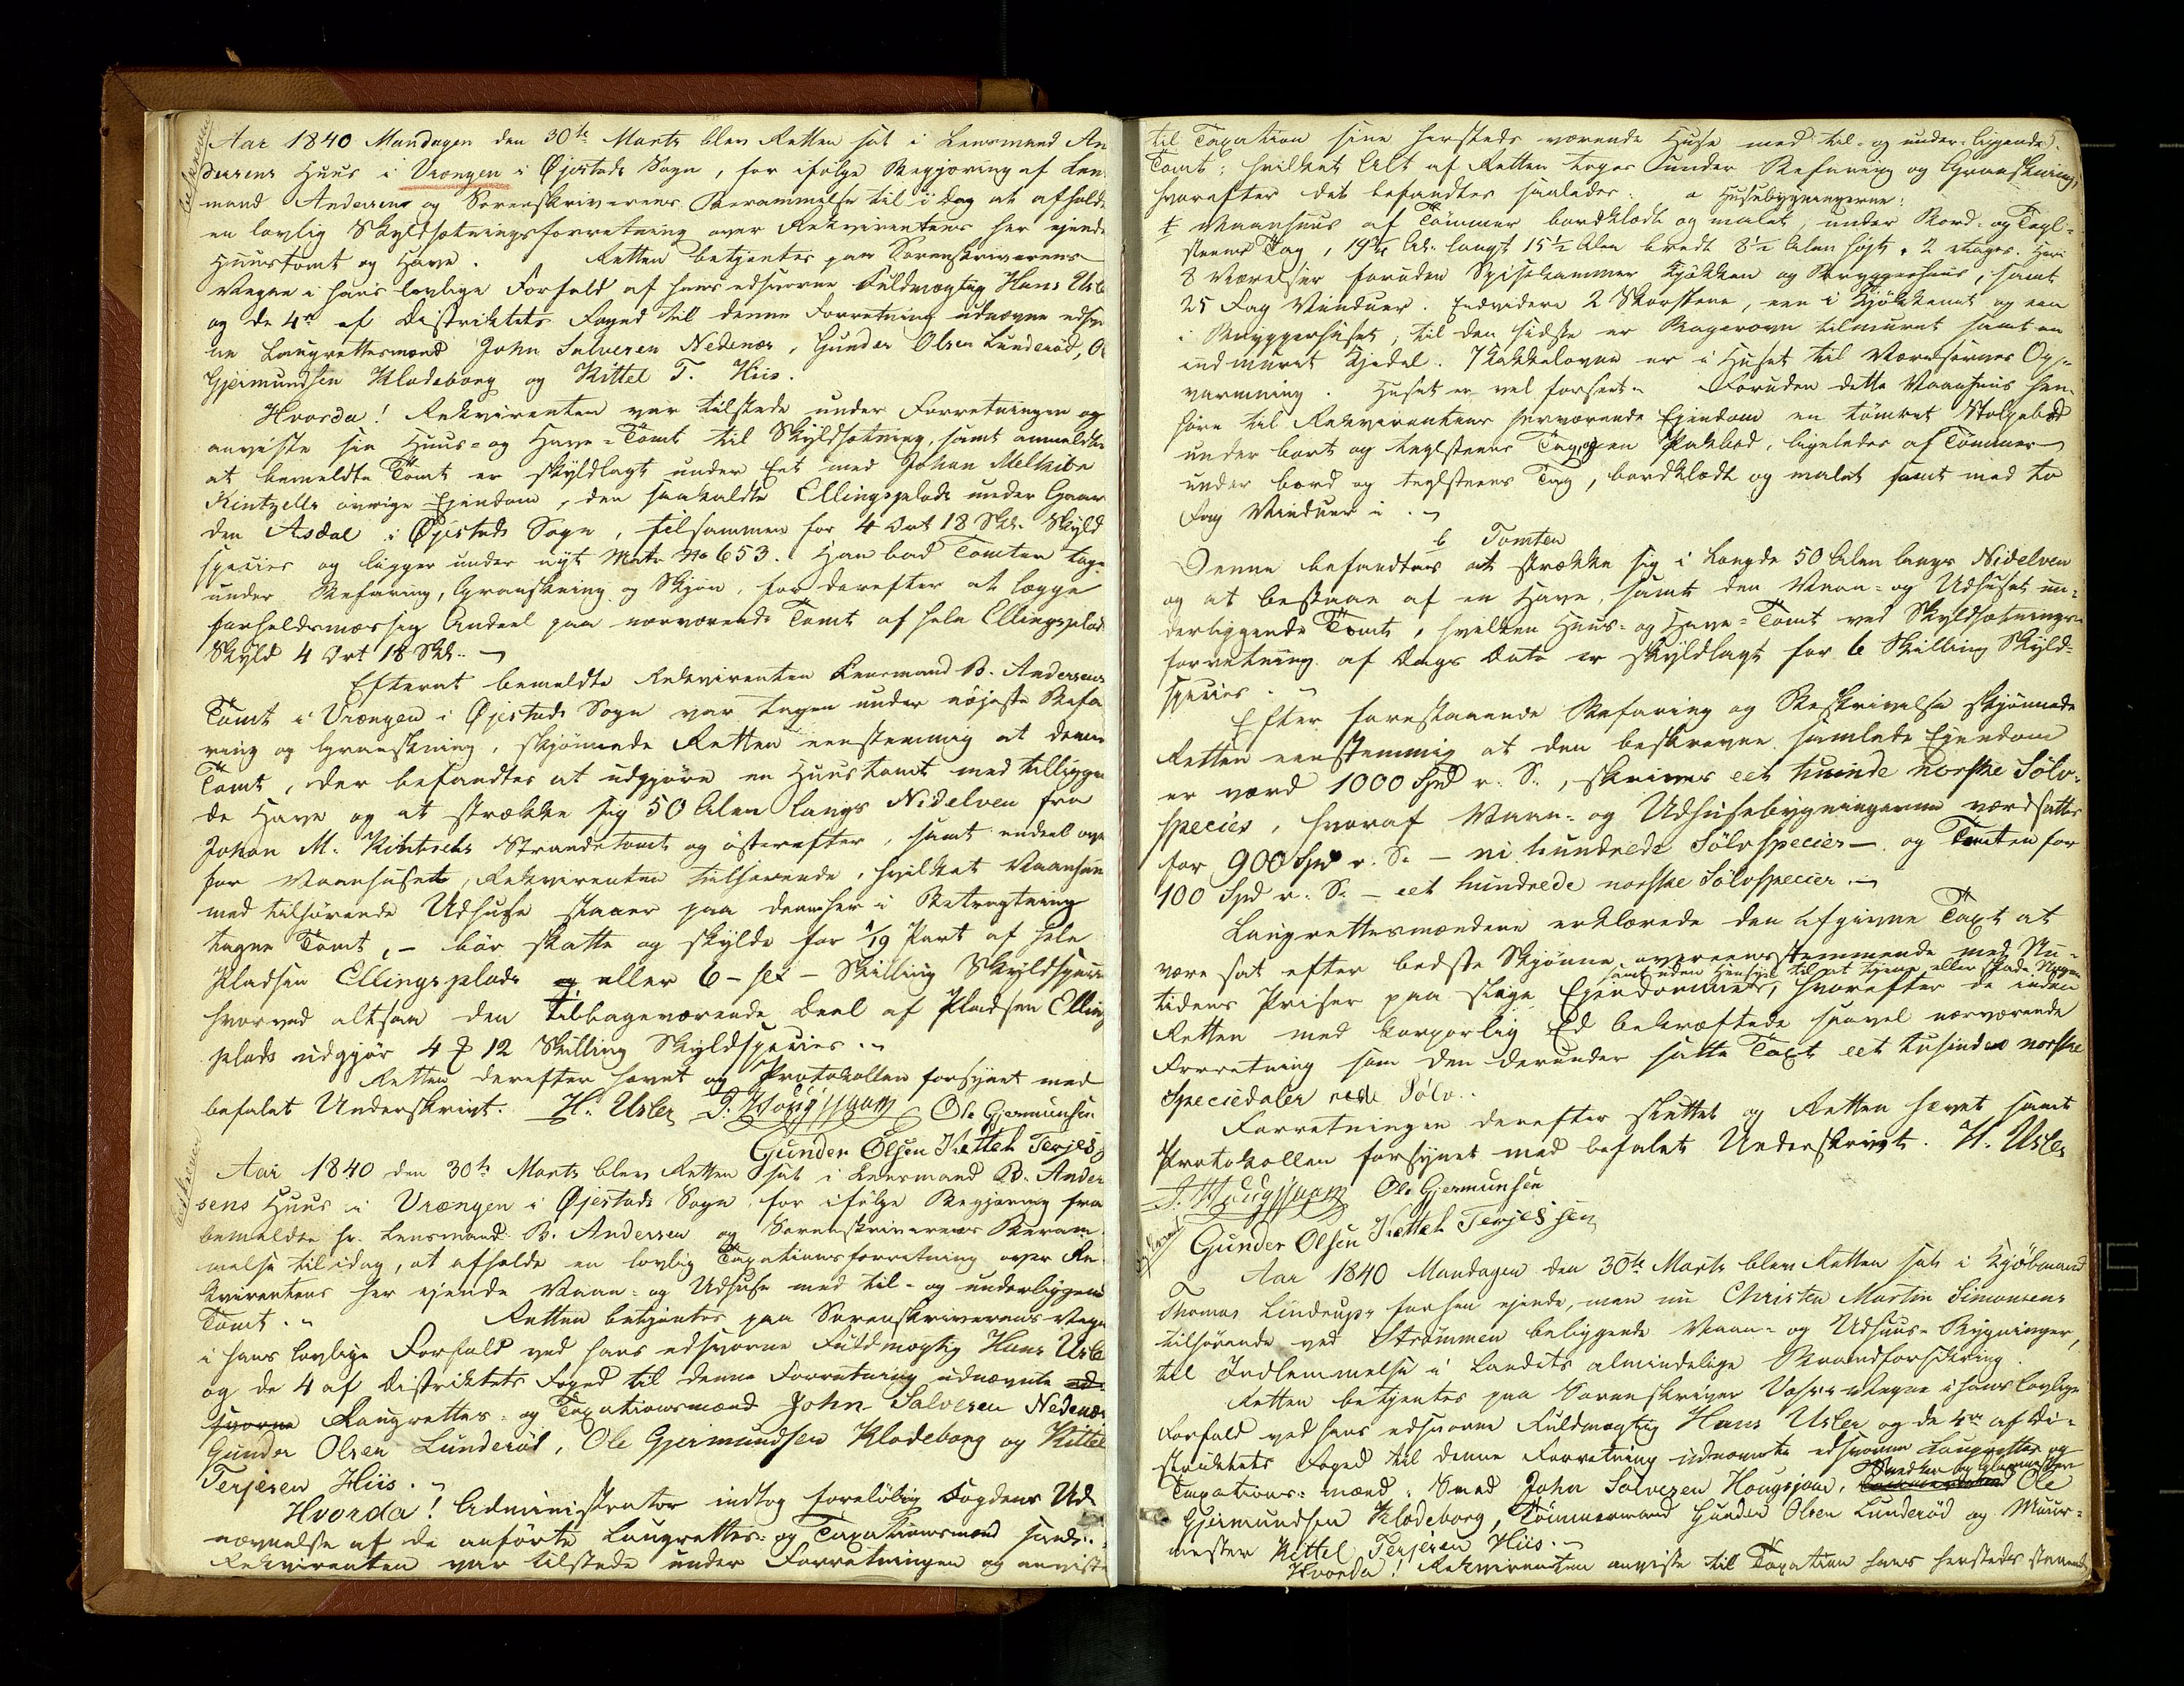 Aar 1840 Mandagen den 30te Marts blev Retten sat i Lensmand An
dersens Huus i Vrængen i Øjestads Sogn, for ifølge Begjæring af Len
mand Andersens og Sorenskriverens Berammelse til i Dag at afholde
en lovlig Skyldsætningsforretning over Rekvirentens her ejende
Huustomt og Have. Retten betjentes paa Sorenskriverens
Vegne i hans lovlige Forfald af hans edsvorne Fuldmægtig Hans Usle
og de 4re af Distriktets Foged til denne Forretning udnævne edsv
ne Laugrettesmænd John Salvesen Nedenæs, Gunder Olsen Lunderød, O
Gjermundsen Klodeborg og Kittel T. Hiis.
Hvorda! Rekvirenten var tilstede under Forretningen og
anviste sin Huus- og Have-Tomt til Skyldsætning, samt anmeldte
at bemeldte Tomt er skyldlagt under Eet med Johan Melkior
Kintzells øvrige Ejendom, den saakaldte Ellingsplads under Gaar
den Asdal i Øjestads Sogn, tilsammen for 4 Ort 18 Skl. Skyld
species og ligger under nyt Matr No 653. Han bad Tomten tage
under Befaring, Granskning og Skjøn, for derefter at lægge
forholdsmæssig Andeel paa nærværende Tomt af hele Ellingsplad
Skyld 4 Ort 18 Skl.
Efterat bemeldte Rekvirenten Lensmand B. Andersens
Tomt i Vrængen i Øjestads Sogn var tagen under nøjeste Befa
ring og Granskning, skjønnede Retten eenstemmig at denne
Tomt, der befandtes at udgjøre en Huustomt med tilligge
de Have og at strække sig 50 Alen langs Nidelven fra
Johan M. Kintzells Strandetomt og østerefter, samt endeel oven
for Vaanhuset, Rekvirenten tilhørende, hvilket Vaanhuus
med tilhørende Udhuse staaer paa denne her i Betragtning
tagne Tomt, – bør skatte og skylde for 1/19 Part af hele
Pladsen Ellingsplads eller 6 – sex – Skilling Skyldspecie
hvorved altsaa den tilbageværende Deel af Pladsen Elling
plads udgjør 4 12 Skilling Skyldspecies.
Retten derefter hævet og Protokollen forsynet med
befalet Underskrivt. H. Usler J. Hougsjaan Ole Gjermunsen
Gunder Olsen Kettel Terjes
Aar 1840 den 30te Marts blev Retten sat i Lensmand B. Ander
sens Huus i Vrængen i Øjestads Sogn for ifølge Begjæring fra
bemeldte hr. Lensmand B. Andersen og Sorenskriverens Beram
melse til idag, at afholde en lovlig Taxationsforretning over Re
kvirentens her ejende Vaan- og Udhuse med til- og underliggende
Tomt. Retten betjentes paa Sorenskriverens Vegn
i hans lovlige Forfald ved hans edsvorne Fuldmægtig Hans Usle
og de 4 af Distriktets Foged til denne Forretning udnævnte ed-
svorne Laugrettes- og Taxationsmænd John Salvesen Nedenæs
Gunder Olsen Lunderød, Ole Gjermundsen Klodeborg og Kittel
Terjesen Hiis.
Hvorda! Administrator indtog foreløbig Fogdens Ud
nævnelse af de anførte Laugrettes- og Taxationsmænd
Rekvirenten var tilstede under Forretningen og anviste
til Taxation sine hersteds værende Huse med til- og under-liggende
Tomt; hvilket Alt af Retten toges under Befaring og Granskning,
hvorefter det befandtes saaledes: a Husebygningerne:
1 Vaanhuus af Tømmer bordklædt og malet, under Bord- og Tegl-
steens Tag, 19 Al. langt 15 1/2 Alen bredt 8 1/2 Alen højt, 2 Etager. Heri
8 Værelser foruden Spisekammer Kjøkken og Bryggerhuus, samt
25 Fag Vinduer. Endvidere 2 Skorstene, een i Kjøkkenet og een
i Bryggerhuset; til den sidste er Bagerovn tilmuret samt en
indmuret Kjedel. 7 Kakkelovne er i Huset til Værelsernes Op-
varmning. Huset er vel forseet. Foruden dette Vaanhuus hen-
høre til Rekvirentens herværende Ejendom en tømret Stolpebod
under bord og teglsteens Tag, og en Pakbod, ligeledes af Tømmer
under bord og teglsteens Tag, bordklædt og malet samt med to
Fag Vinduer i.
b Tomten
Denne befandtes at strække sig i Længde 50 Alen langs Nidelven
og at bestaae af en Have, samt den Vaan- og Udhuset un-
derliggende Tomt, hvilken Huus- og Have-Tomt ved Skyldsætnings-
forretning af Dags Dato er skyldlagt for 6 Skilling Skyld-
species.
Efter forestaaende Befaring og Beskrivelse skjønnede
Retten eenstemmig at den beskrevne samlede Ejendom
er værd 1000 Spd r. S., skriver eet tusinde norske Sølv-
species, hvoraf Vaan- og Udhusebygningerne værdsattes
for 900 Spd r. S. – ni hundrede Sølvspecier – og Tomten for
100 Spd r. S. – eet hundrede norske Sølvspecier.
Laugrettesmændene erklærede den afgivne Taxt at
være sat efter bedste Skjønne overeensstemmende med Nu-
tidens Priser paa slige Ejendomme, samt uden Hensyn til at tjene eller skade Nogen hvorefter de inden
Retten med korporlig Ed bekræftede saavel nærværende
Forretning som den derunder satte Taxt eet tusinde norske
Speciedaler rede Sølv.
Forretningen derefter sluttet og Retten hævet samt
Protokollen forsynet med befalet Underskrivt. H. Usler
J. Hougsjaan Ole Gjermunsen
Gunder Olsen Kettel Terjessen
Aar 1840 Mandagen den 30te Marts blev Retten sat i Kjøbmand
Thomas Lindrups forhen ejende, men nu Christen Martin Simonsens
tilhørende ved Strømmen beliggende Vaan- og Udhuus-Bygninger,
til Indlemmelse i Landets almindelige Brandforsikring.
Retten betjentes paa Sorenskriver Vegne i hans lovlige
Forfald ved hans edsvorne Fuldmægtig Hans Usler og de 4re af Di-
striktets Foged til denne Forretning udnævnte edsvorne Laugrettes og
Taxations-mænd: Smed John Salvesen Hougsjaae, Snedker og Glarmester Ole
Gjermundsen Klodeborg, Tømmermand Gunder Olsen Lunderød og Muur-
mester Kittel Terjesen Hiis.
Hvorda! Rekvirenten anviste til Taxation hans hersteds staaende